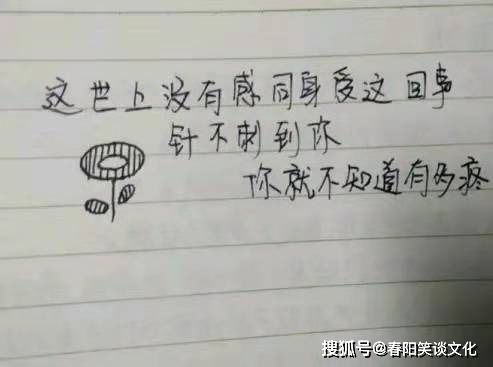 这世上没有感同身受这回事
针不刺到你
你就不知道有多疼
搜狐号@春阳笑谈文化